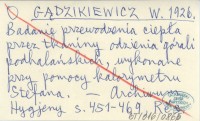 GĄDZIKIEWICZ W. 1926.
Badanie przewodzenia ciepła
przez tkaniny odzienia górali
podhalańskich, wykonane
przy pomocy kalorymetru
Stefana. — Archiwum
Hygjeny s. 451-469, Res.